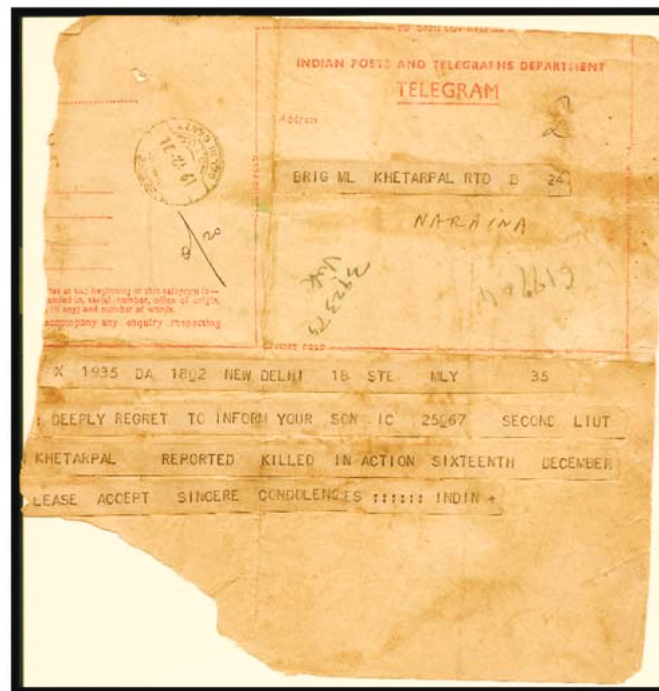 INDIAN POSTS AND TELEGRAPHS DEPARTMENT
TELEGRAM
Address
BRIG ML KHETARPAL RTD B 24
NARAINA
8/20
at the beginning of this telegram
serial number, office of origin,
(if any) and number of words.
accompany any enquiry respecting
X 1935 DA 1802 NEW DELHI 18 STE MLY 35
: DEEPLY REGRET TO INFORM YOUR SON IC 25067 SECOND LIUT
KHETARPAL REPORTED KILLED IN ACTION SIXTEENTH DECEMBER
LEASE ACCEPT SINCERE CONDOLENCES :::::: INDIN +